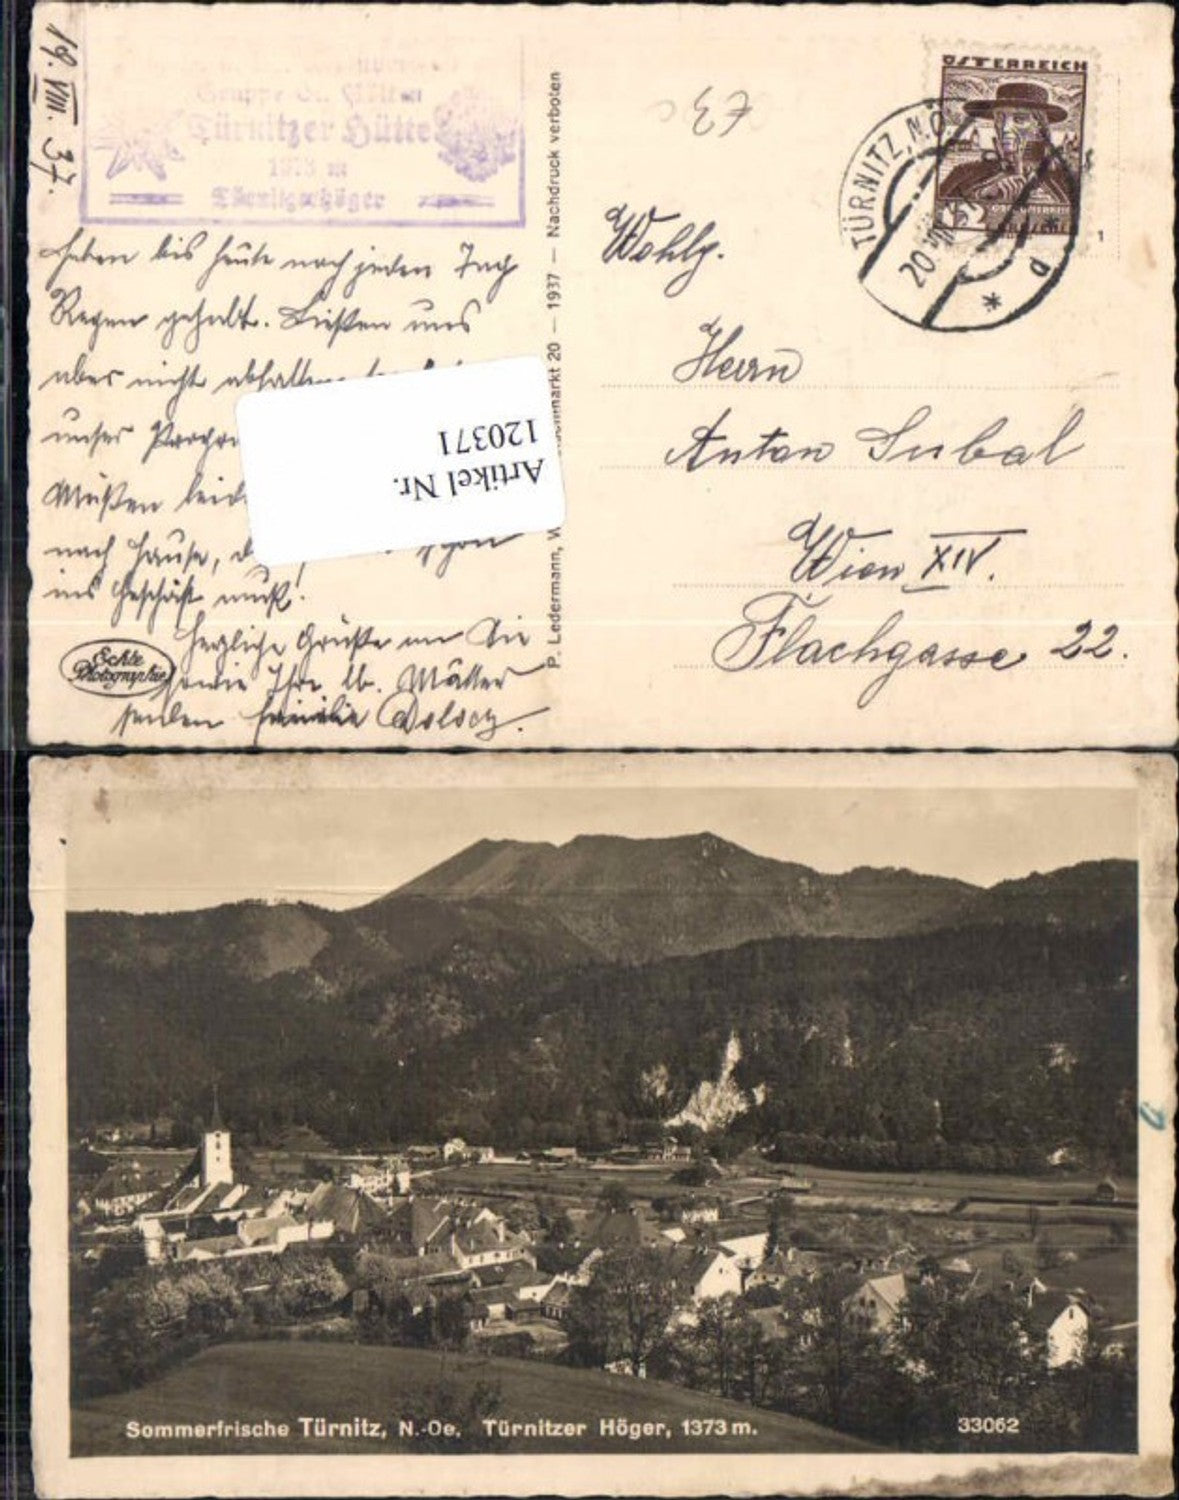 19. VIII. 37.
Gruppe St. Pölten
Türnitzer Hütte
1373 m
Türnitzerhöger
Haben bis heute noch jeden Tag
Regen gehabt. Ließen uns
aber nicht abhalten
unser
Müßen
nach Hause, schon
ins Geschäft muß!
Herzliche Grüße an Sie
sowie Ihre lb. Mutter
senden Familie
Echte
Photographie
Artikel Nr.
120371
P. Ledermann, W markt 20 — 1937 — Nachdruck verboten
ÖSTERREICH
TÜRNITZ, N.Ö.
20. VIII. 37
d
1
Wohlg.
Herrn
Anton Subal
Wien XIV.
Flachgasse 22.
Sommerfrische Türnitz, N.-Oe. Türnitzer Höger, 1373 m.
33062